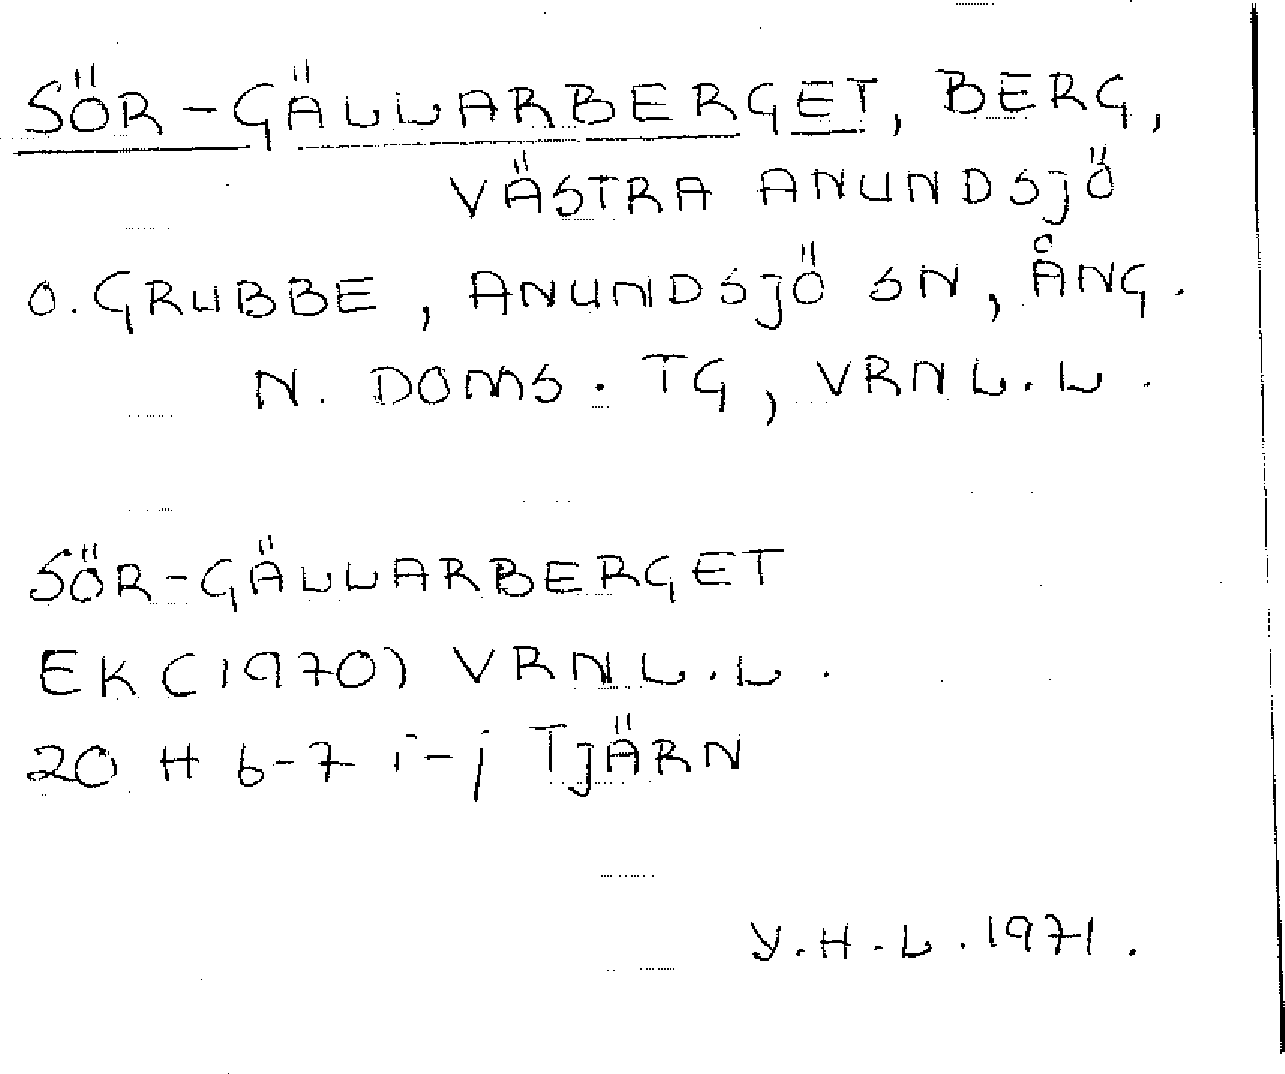 SÖR-GÄLLARBERGET, BERG,
VÄSTRA ANUNDSJÖ
O. GRUBBE, ANUNDSJÖ SN, ÅNG.
N. DOMS. TG, VRNL.L.
SÖR-GÄLLARBERGET
EK (1970) VRNL.L.
20 H 6-7 i-j TJÄRN
Y.H.L. 1971.